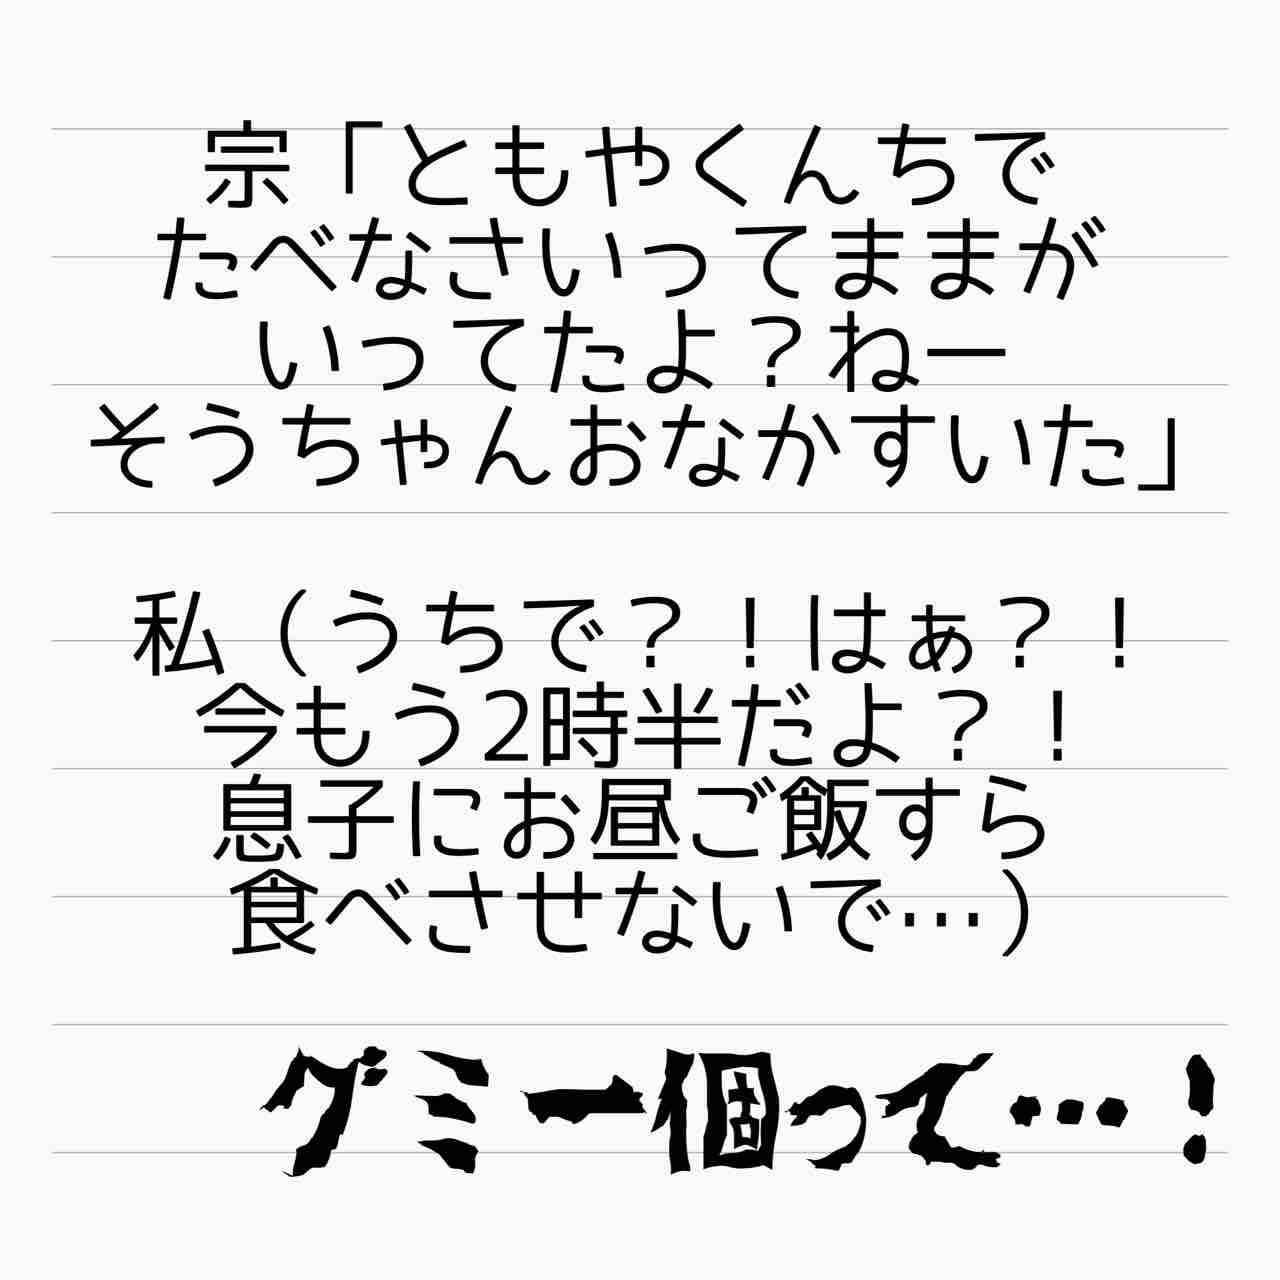 宗「ともやくんちで
たべなさいってままが
いってたよ？ねー
そうちゃんおなかすいた」
私（うちで？！はぁ？！
今もう2時半だよ？！
息子にお昼ご飯すら
食べさせないで…）
グミ一個って…！